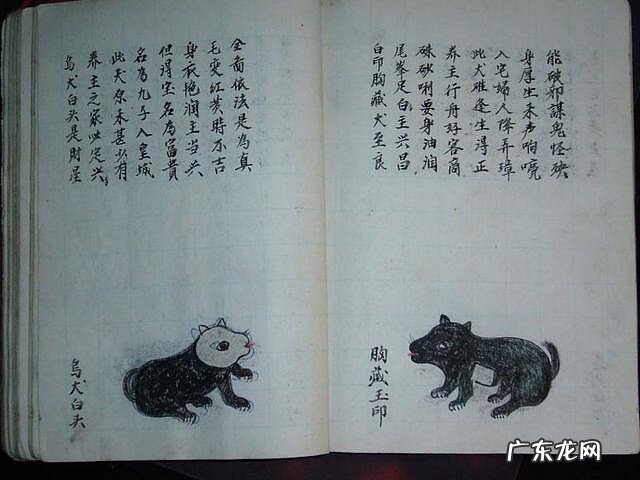 烏犬白头是財星
养主之家必定兴
此犬原来甚少有
名為九子入皇城
但得宝名為富貴
身衣艳润主当兴
毛变红黄時不吉
全面依法是為真
烏犬白头
白印胸藏犬至良
尾峯足白主兴昌
硃砂唎要身油润
养主行舟好客商
此犬难逢生得正
入宅婦人降弄璋
身厚生来声响喨
能破邪謀鬼怪殃
胸藏玉印
广东龙网